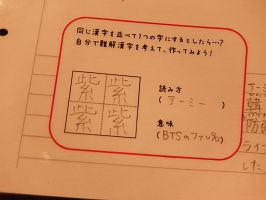 同じ漢字を並べて1つの字にするとしたら…?
自分で難解漢字を考えて、作ってみよう!
紫紫
紫紫
読み方
(アーミー)
意味
(BTSのファン名)
アーミー
韓
防
ライ
した